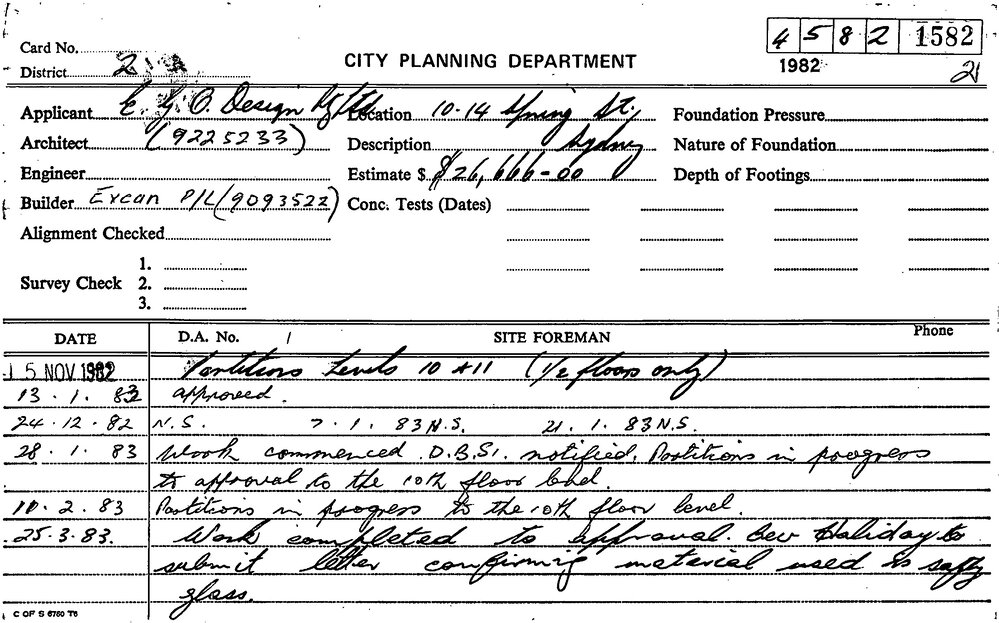 4 5 8 2 1582
Card No.
CITY PLANNING DEPARTMENT
1982
21
District 2
Applicant E. G. O. Design Pty Ltd Location 10-14 Spring St. Foundation Pressure
Architect (9225233) Description Sydney Nature of Foundation
Engineer Estimate $ $26,666-00 Depth of Footings
Builder Ercan P/L (9093522) Conc. Tests (Dates)
Alignment Checked
1.
Survey Check 2.
3.
DATE D.A. No. / SITE FOREMAN Phone
15 NOV 1982 Partitions Levels 10 & 11 (1/2 floors only)
13 . 1 . 83 approved .
24 . 12 . 82 N.S. 7 . 1 . 83 N.S. 21 . 1 . 83 N.S.
28 . 1 . 83 Work commenced. D.B.S. notified. Partitions in progress
to approval to the 10th floor level.
10 . 2 . 83 Partitions in progress to the 10th floor level.
25.3.83. Work completed to approval. Bev Haliday to
submit letter confirming material used is safty
glass.
C OF S 6750 T6